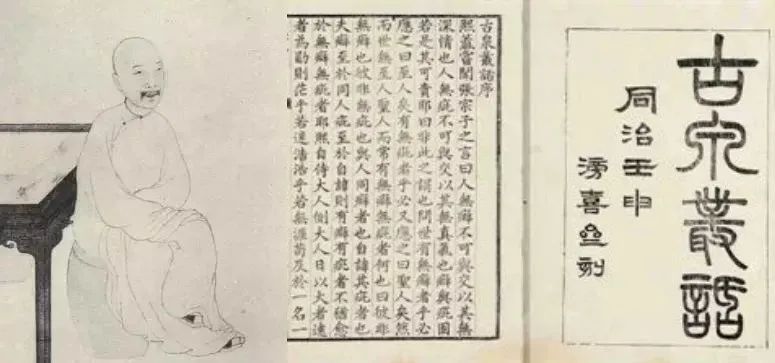 古泉叢話
同治壬申
滂喜齋刻
古泉叢話序
熙嘗聞張宗子之言曰人無癖不可與交以其無
深情也人無疵不可與交以其無真氣也癖與疵固
若是其可貴耶曰非此之謂也問世有無癖者乎必
應之曰至人矣有無疵者乎必又應之曰聖人矣然
而世無至人聖人而常有無癖無疵者何也曰彼非
無癖也彼非無疵也與人同癖者也自諱其疵者也
夫癖至於同人疵至於自諱則有癖有疵者不猶愈
於無癖無疵者耶熙自侍大人側大人日以大者遠
者為勖則茫乎若迷浩乎若無涯苟及於一名一